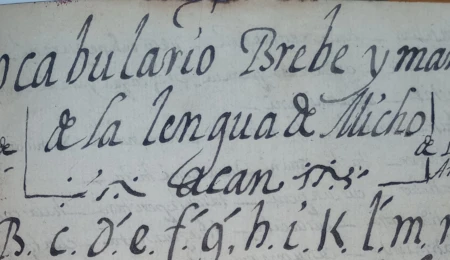 ocabulario Brebe y man
de la lengua de Micho
acan
B. c. d. e. f. g. h. i. K. l. m.